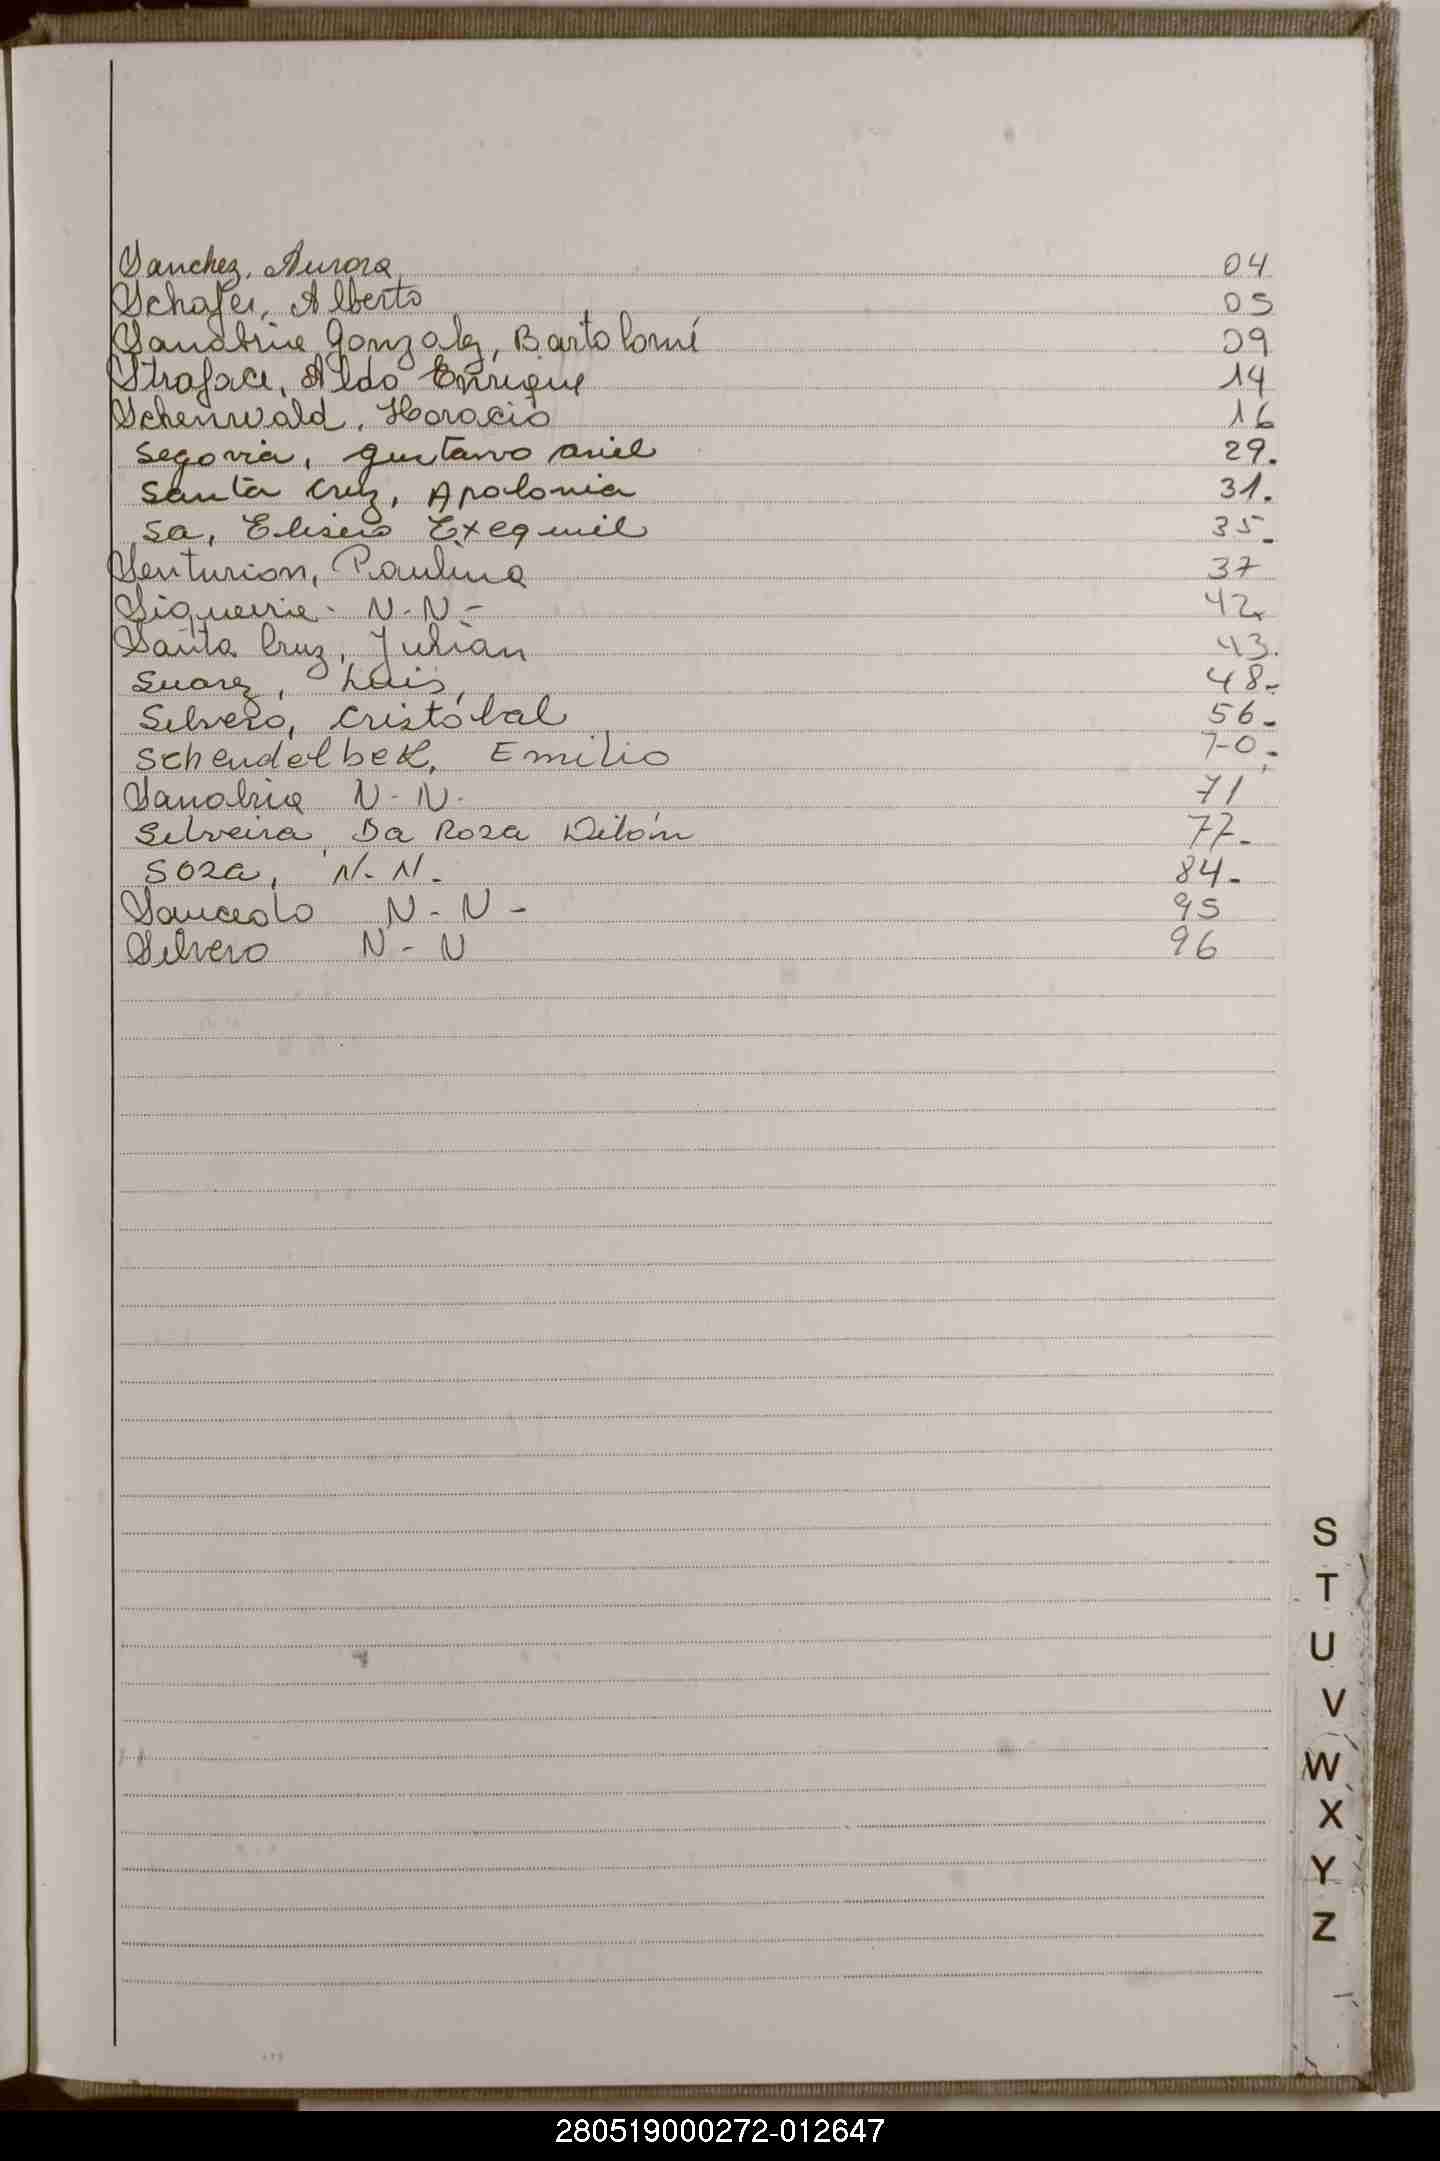 Sanchez, Aurora 04
Schafer, Alberto 05
Sanabria Gonzalez, Bartolomé 09
Straface, Aldo Enrique 14
Schenwald, Horacio 16
Segovia, Gustavo Ariel 29.
Santa Cruz, Apolonia 31.
Sa, Eliseo Exequiel 35.
Senturion, Paulina 37
Siqueira - N-N- 42
Santa Cruz, Julián 43.
Suarez, Luis, 48-
Silvero, Cristóbal 56-
Schendelbek, Emilio 70-
Sanabria N-N- 71
Silveira, Da Roza 77-
Soza, N-N- 84-
Saucedo N-N- 95
Silvero N-N 96
S
T
U
V
W
X
Y
Z
280519000272-012647